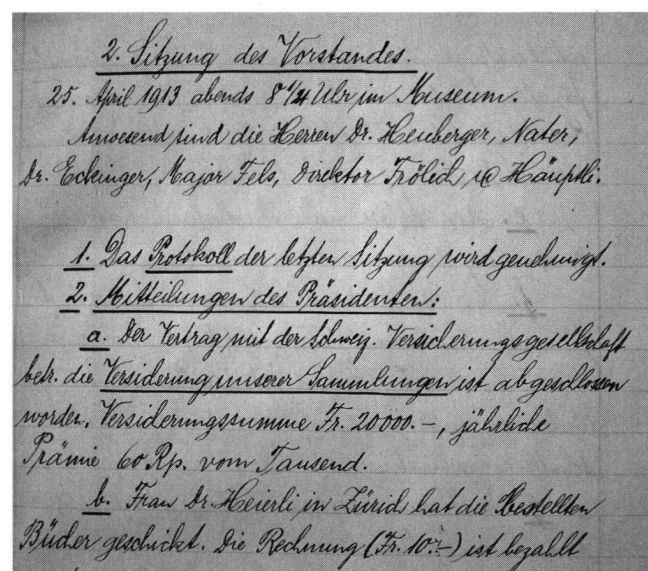 2. Sitzung des Vorstandes.
25. April 1913 abends 8 1/4 Uhr im Museum.
Anwesend sind die Herren Dr. Heuberger, Nater,
Dr. Eckinger, Major Fels, Direktor Frölich, & Häuptli.
1. Das Protokoll der letzten Sitzung wird genehmigt.
2. Mitteilungen des Präsidenten:
a. Der Vertrag mit der Schweiz. Versicherungsgesellschaft
betr. die Versicherung unserer Sammlungen ist abgeschlossen
worden. Versicherungssumme Fr. 20000.-, jährliche
Prämie 60 Rp. vom Tausend.
b. Frau Dr. Heierli in Zürich hat die bestellten
Bücher geschickt. Die Rechnung (Fr. 10.-) ist bezahlt